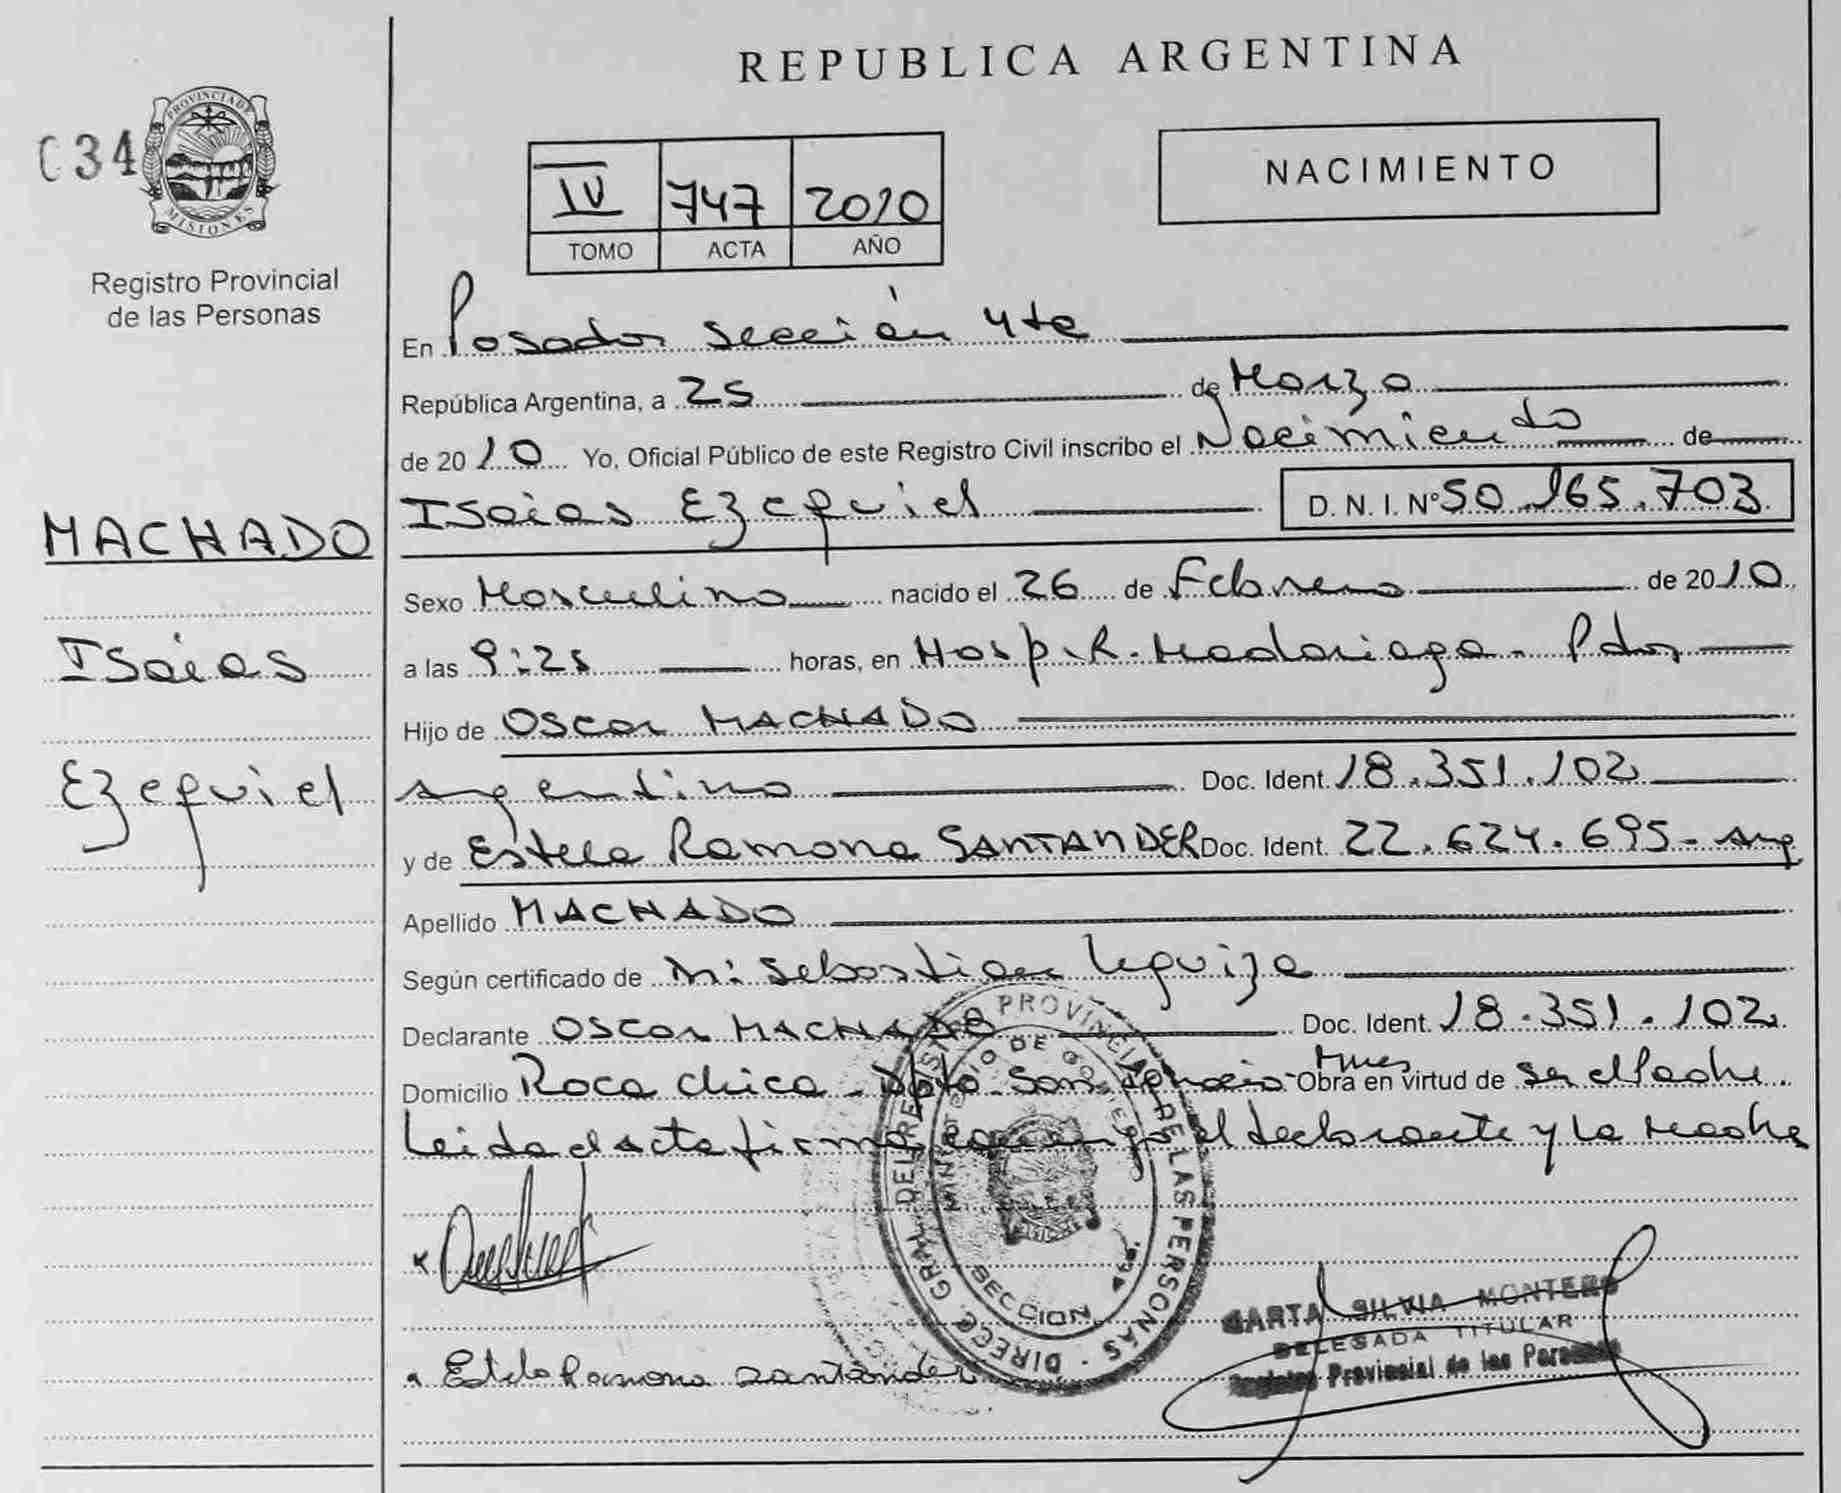 REPUBLICA ARGENTINA
034
PROVINCIA DE
MISIONES
Registro Provincial
de las Personas
IV 747 2010
TOMO ACTA AÑO
NACIMIENTO
En Posadas sección 4ta
República Argentina, a 25 de Marzo
de 2010 Yo, Oficial Público de este Registro Civil inscribo el Nacimiento de
Isaias Ezequiel D. N. I. Nº 50.165.703
MACHADO
Isaias
Ezequiel
Sexo Masculino nacido el 26 de Febrero de 2010
a las 9:25 horas, en Hosp. R. Madariaga - Pdas
Hijo de Oscar MACHADO
argentino Doc. Ident. 18.351.102
y de Estela Ramona SANTANDER Doc. Ident. 22.624.695 - arg
Apellido MACHADO
Según certificado de Sebastian
Declarante Oscar MACHADO Doc. Ident. 18.351.102
Domicilio Roca Chica - Dpto. San Ignacio - Mnes Obra en virtud de ser el Padre.
Leida el acta firman conmigo el declarante y la Madre
Estela Ramona Santander
DIRECC. GRAL. DEL REGISTRO PROVINCIAL DE LAS PERSONAS
MINISTERIO DE GOBIERNO
SECCION 4ta.
MARTA SILVIA MONTERO
DELEGADA TITULAR
Registro Provincial de las Personas